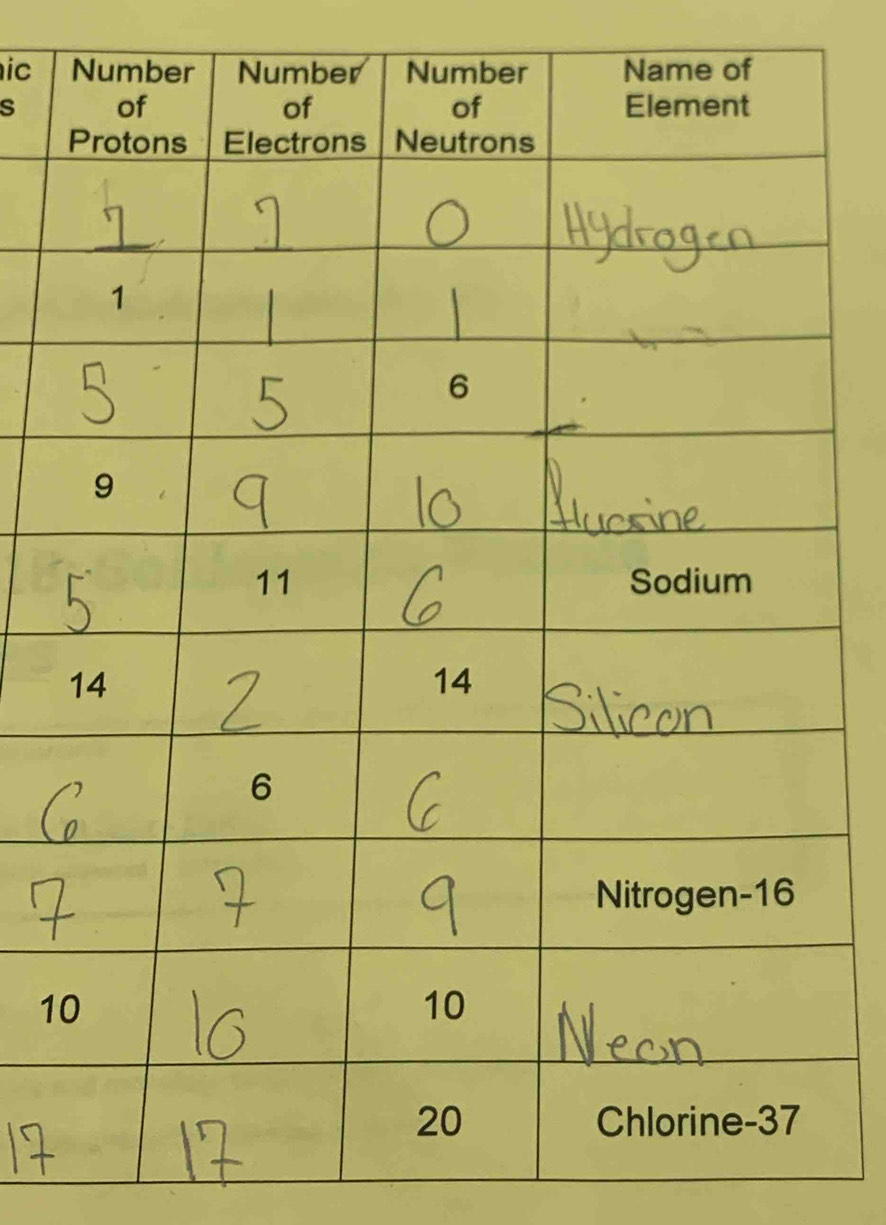 ic Number Number Number Name of
s of of of Element
Protons Electrons Neutrons
1 1 0 Hydrogen
1 1 1
5 5 6
9 9 10 flucrine
5 11 6 Sodium
14 2 14 Silicon
6 6 6
7 7 9 Nitrogen-16
10 10 10 Neon
17 17 20 Chlorine-37